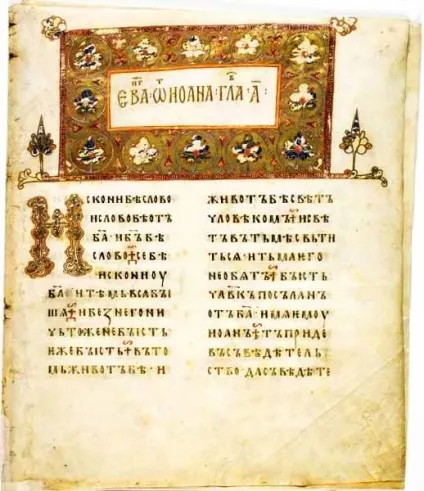 ЕВА҃·Ѡ ИОАНА·ГЛА·А҃:
ИСКОНИ БѢ СЛОВО
И СЛОВО БѢ ОТЪ
Б҃А·И Б҃Ъ БѢ
СЛОВО·СЕ БѢ
ИСКОНИ ОУ
Б҃А·И ТѢМЬ ВЬСА БЫ
ША·И БЕЗ НЕГО НИ
ЧЬТОЖЕ НЕ БЫСТЬ
ѤЖЕ БЫСТЬ·ВЪ ТО
МЬ ЖИВОТЪ БѢ·И
ЖИВОТЪ БѢ СВѢТЪ
ЧЛОВѢКОМЪ·И СВѢ
ТЪ ВЪ ТЬМѢ СВЬТИ
ТЬСѦ·И ТЬМА ѤГО
НЕ ОБѦТЪ·БЫСТЬ
ЧЛВ҃КЪ ПОСЪЛАНЪ
ОТЪ Б҃А·ИМѦ ѤМОУ
ИОАНЪ·ТЪ ПРИДЕ
ВЪ СЪВѢДѢТЕЛЬ
СТВО·ДА СЪВѢДѢТЕ